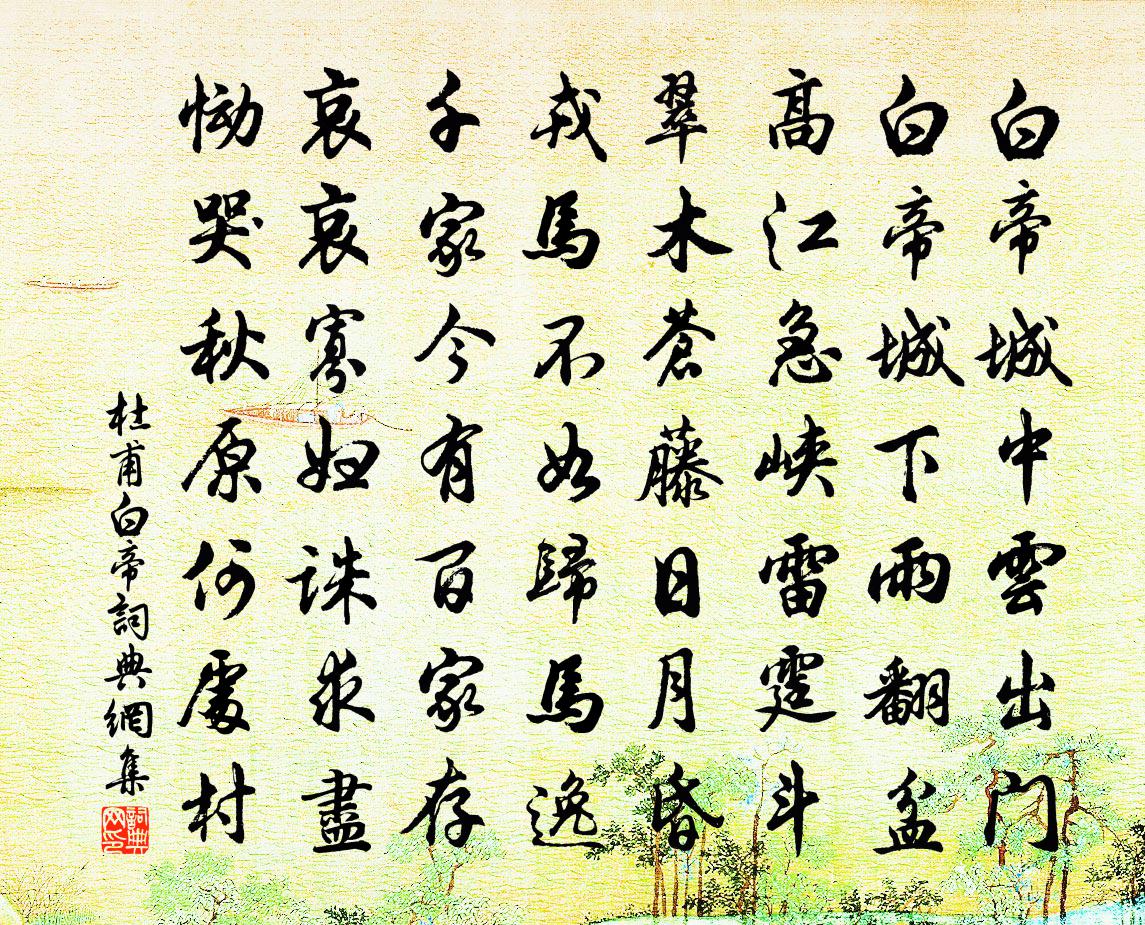 白帝城中雲出门
白帝城下雨翻盆
髙江急峡雷霆斗
翠木蒼藤日月昏
戎馬不如歸馬逸
千家今有百家存
哀哀寡妇誅求盡
恸哭秋原何處村
杜甫白帝詞典網集
詞典
网印